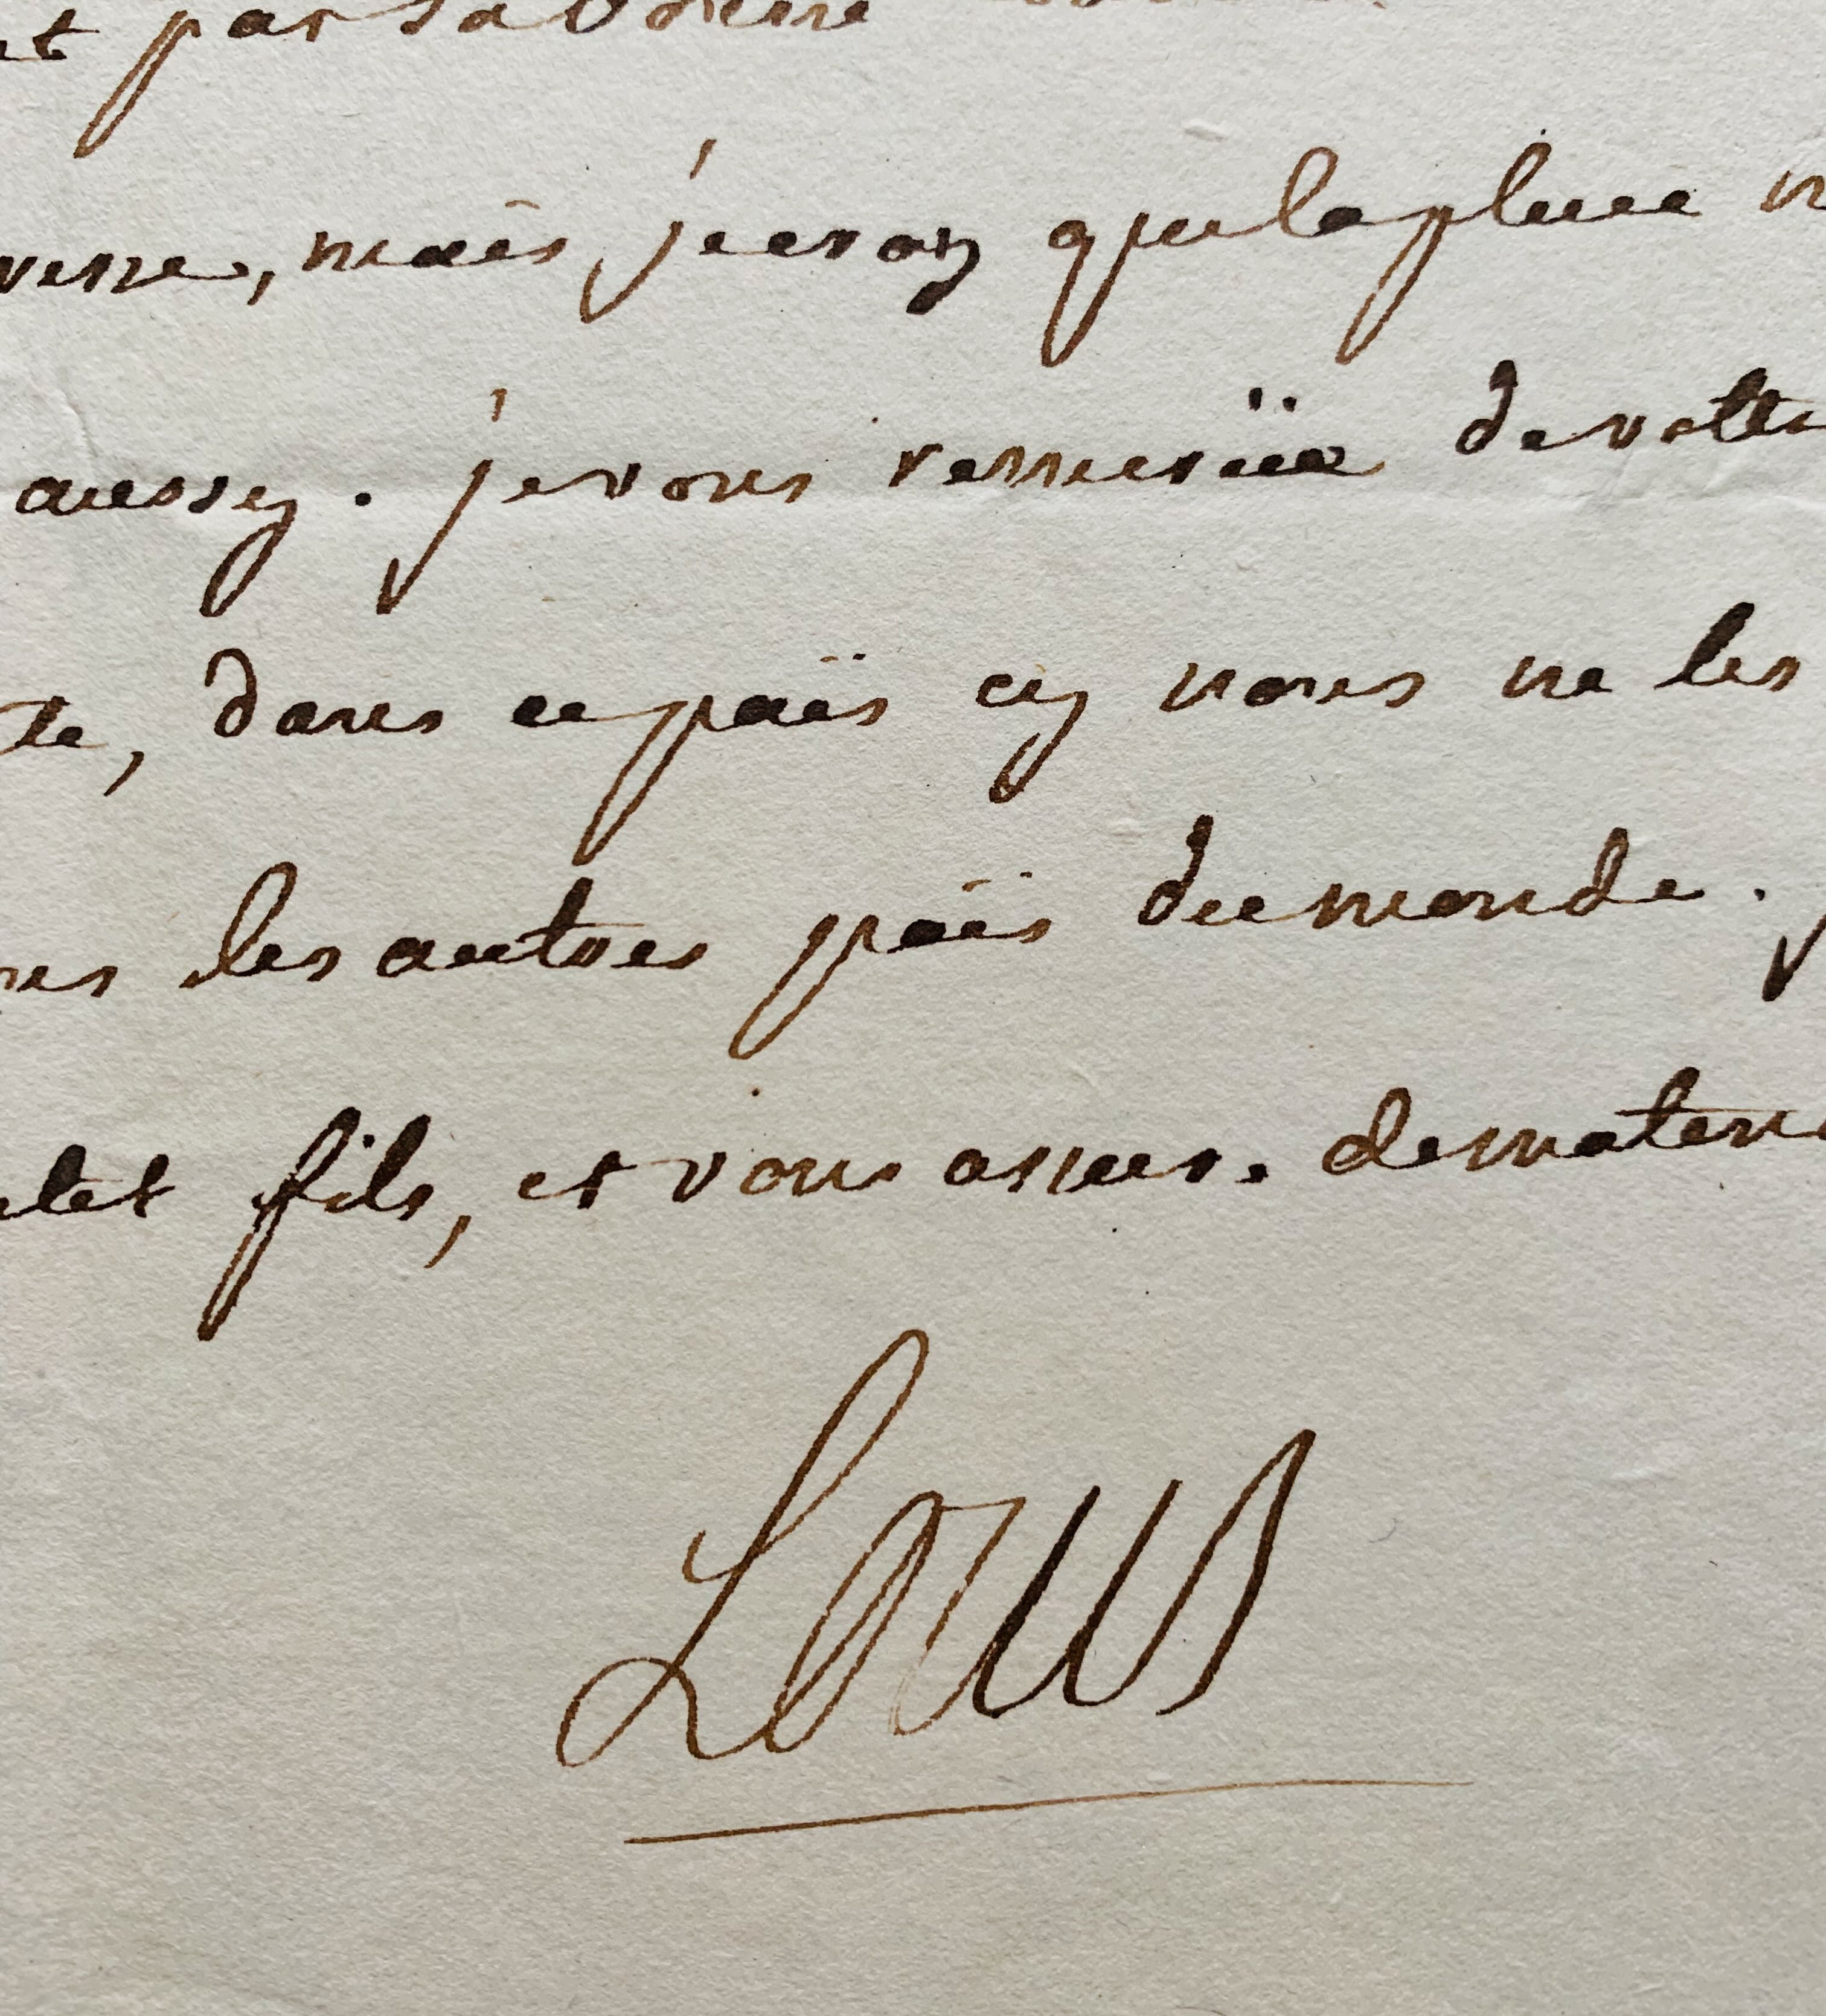 par sa
mais je croy que la pluie
aussy. je vous remercië de votre
te, dans ce païs cy nous ne les
les autres païs du monde.
fils, et vous assure de ma ten
Louis